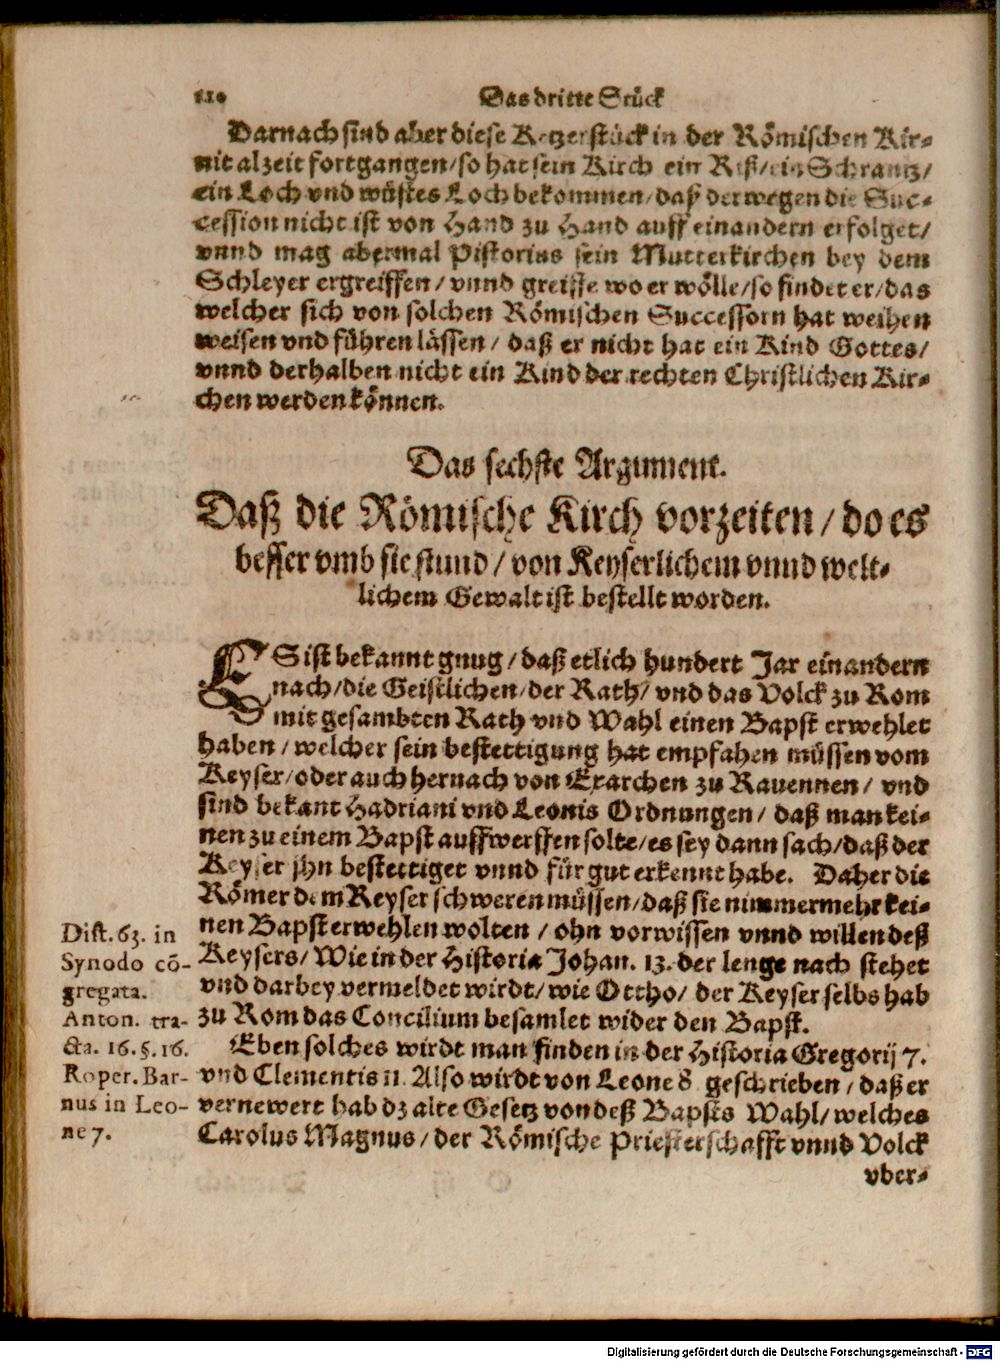 110
Das dritte Stück
Darnach sind aber diese Ketzerstück in der Römischen Kir-
nit alzeit fortgangen/ so hat sein Kirch ein Riß/ ein Schrantz/
ein Loch vnd wüstes Loch bekommen/ daß derwegen die Suc-
cession nicht ist von Hand zu Hand auff einandern erfolget/
vnnd mag abermal Pistorius sein Mutterkirchen bey dem
Schleyer ergreiffen/ vnnd greiffe wo er wölle/ so findet er/ das
welcher sich von solchen Römischen Successorn hat weihen
weisen vnd führen lassen/ daß er nicht hat ein Kind Gottes/
vnnd derhalben nicht ein Kind der rechten Christlichen Kir-
chen werden können.
Das sechste Argument.
Daß die Römische Kirch vorzeiten/ do es
besser vmb sie stund/ von Keyserlichem vnnd welt-
lichem Gewalt ist bestellt worden.
ES ist bekannt gnug/ daß etlich hundert Jar einandern
nach/ die Geistlichen/ der Rath/ vnd das Volck zu Rom
mit gesambten Rath vnd Wahl einen Bapst erwehlet
haben/ welcher sein bestettigung hat empfahen müssen vom
Keyser/ oder auch hernach von Exarchen zu Rauennen/ vnd
sind bekant Hadriani vnd Leonis Ordnungen/ daß man kei-
nen zu einem Bapst auffwerffen solte/ es sey dann sach/ daß der
Keyser jhn bestettiget vnnd für gut erkennt habe. Daher die
Römer dem Keyser schweren müssen/ daß sie nimmermehr kei-
nen Bapst erwehlen wolten/ ohn vorwissen vnnd willen deß
Keysers/ Wie in der Historia Johan. 13. der lenge nach stehet
vnd darbey vermeldet wirdt/ wie Ottho/ der Keyser selbs hab
zu Rom das Concilium besamlet wider den Bapst.
Eben solches wirdt man finden in der Historia Gregorij 7.
vnd Clementis 11. Also wirdt von Leone 8. geschrieben/ daß er
vernewert hab dz alte Gesetz von deß Bapsts Wahl/ welches
Carolus Magnus/ der Römische Priesterschafft vnnd Volck
vber-
Dist. 63. in
Synodo cõ-
gregata.
Anton. tra-
cta. 16. 5. 16.
Roper. Bar-
nus in Leo-
ne 7.
Digitalisierung gefördert durch die Deutsche Forschungsgemeinschaft - DFG